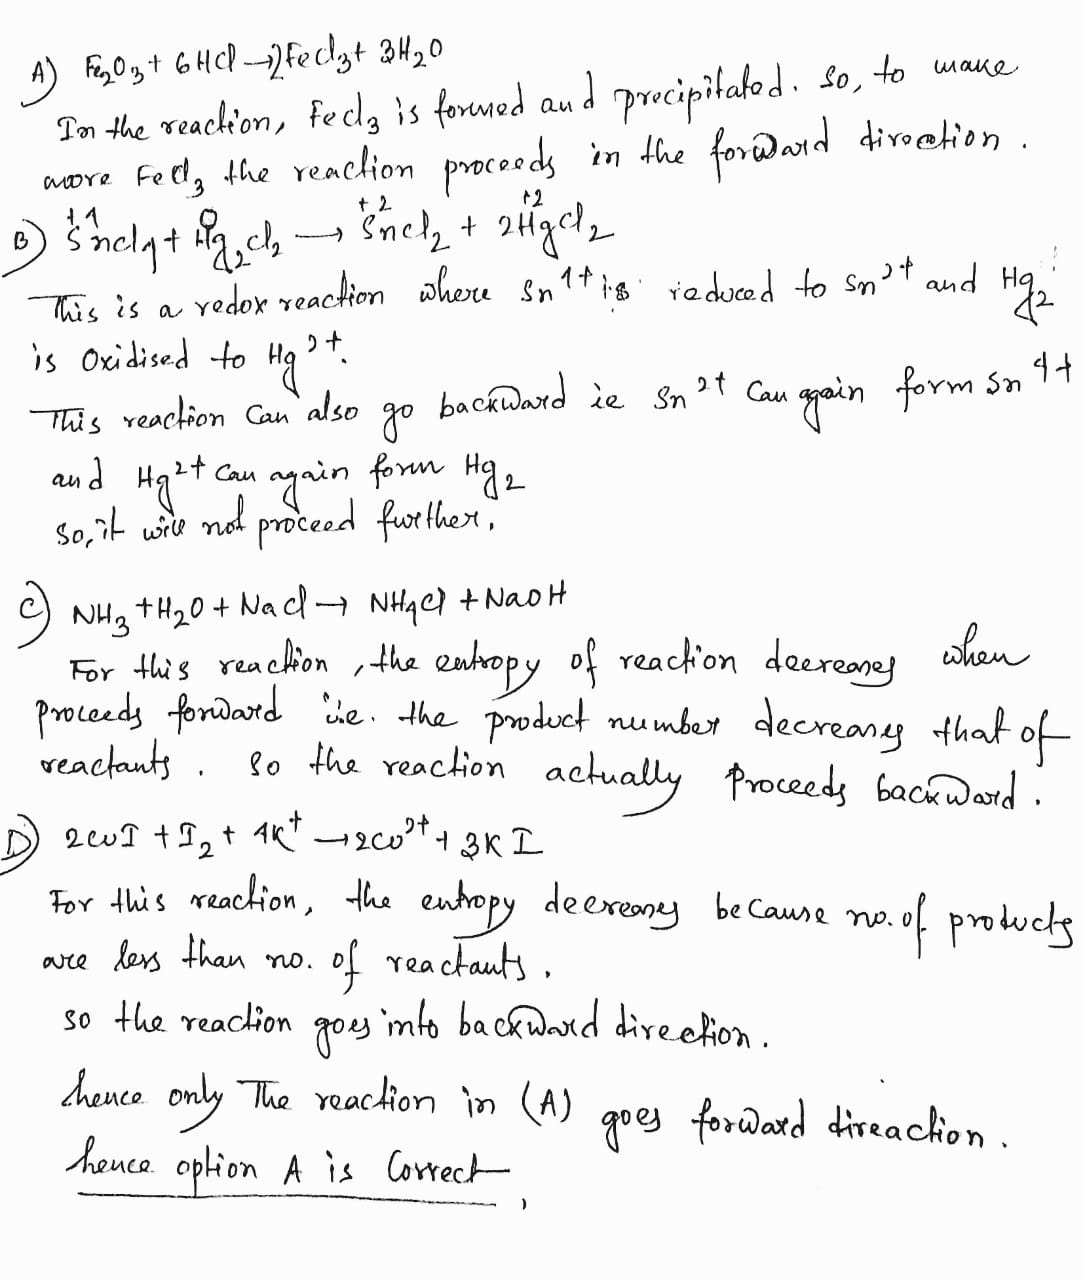 A) Fe2O3 + 6HCl → 2FeCl3 + 3H2O
In the reaction, FeCl3 is formed and precipitated. So, to make
more FeCl3 the reaction proceeds in the forward direction.
+4 0 +2 +2
B) SnCl4 + Hg2Cl2 → SnCl2 + 2HgCl2
This is a redox reaction where Sn4+ is reduced to Sn2+ and Hg2
is oxidised to Hg2+.
This reaction can also go backward ie Sn2+ can again form Sn4+
and Hg2+ can again form Hg2
So, it will not proceed further.
C) NH3 + H2O + NaCl → NH4Cl + NaOH
For this reaction, the entropy of reaction decreases when
proceeds forward i.e. the product number decreases that of
reactants. So the reaction actually proceeds backward.
D) 2CuI + I2 + 4K+ → 2Cu2+ + 3KI
For this reaction, the entropy decreases because no. of products
are less than no. of reactants.
So the reaction goes into backward direction.
hence only The reaction in (A) goes forward direaction.
hence option A is Correct,